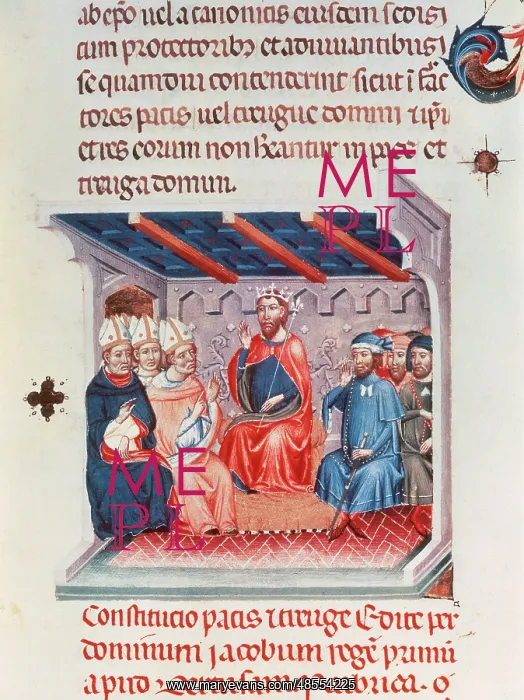 ab ep̄o uel a canonicis eiusdem sedis
cum protectoribȝ et adiuuantibus
se quamdiu contenderint sicut ī frac
tores pacis uel treugue domini
et res eorum non sint in pace et
treuga domini.
ME
PL
ME
PL
Constitucio pacis ⁊ treuge Edite per
dominum jacobum regē primū
www.maryevans.com/48554225